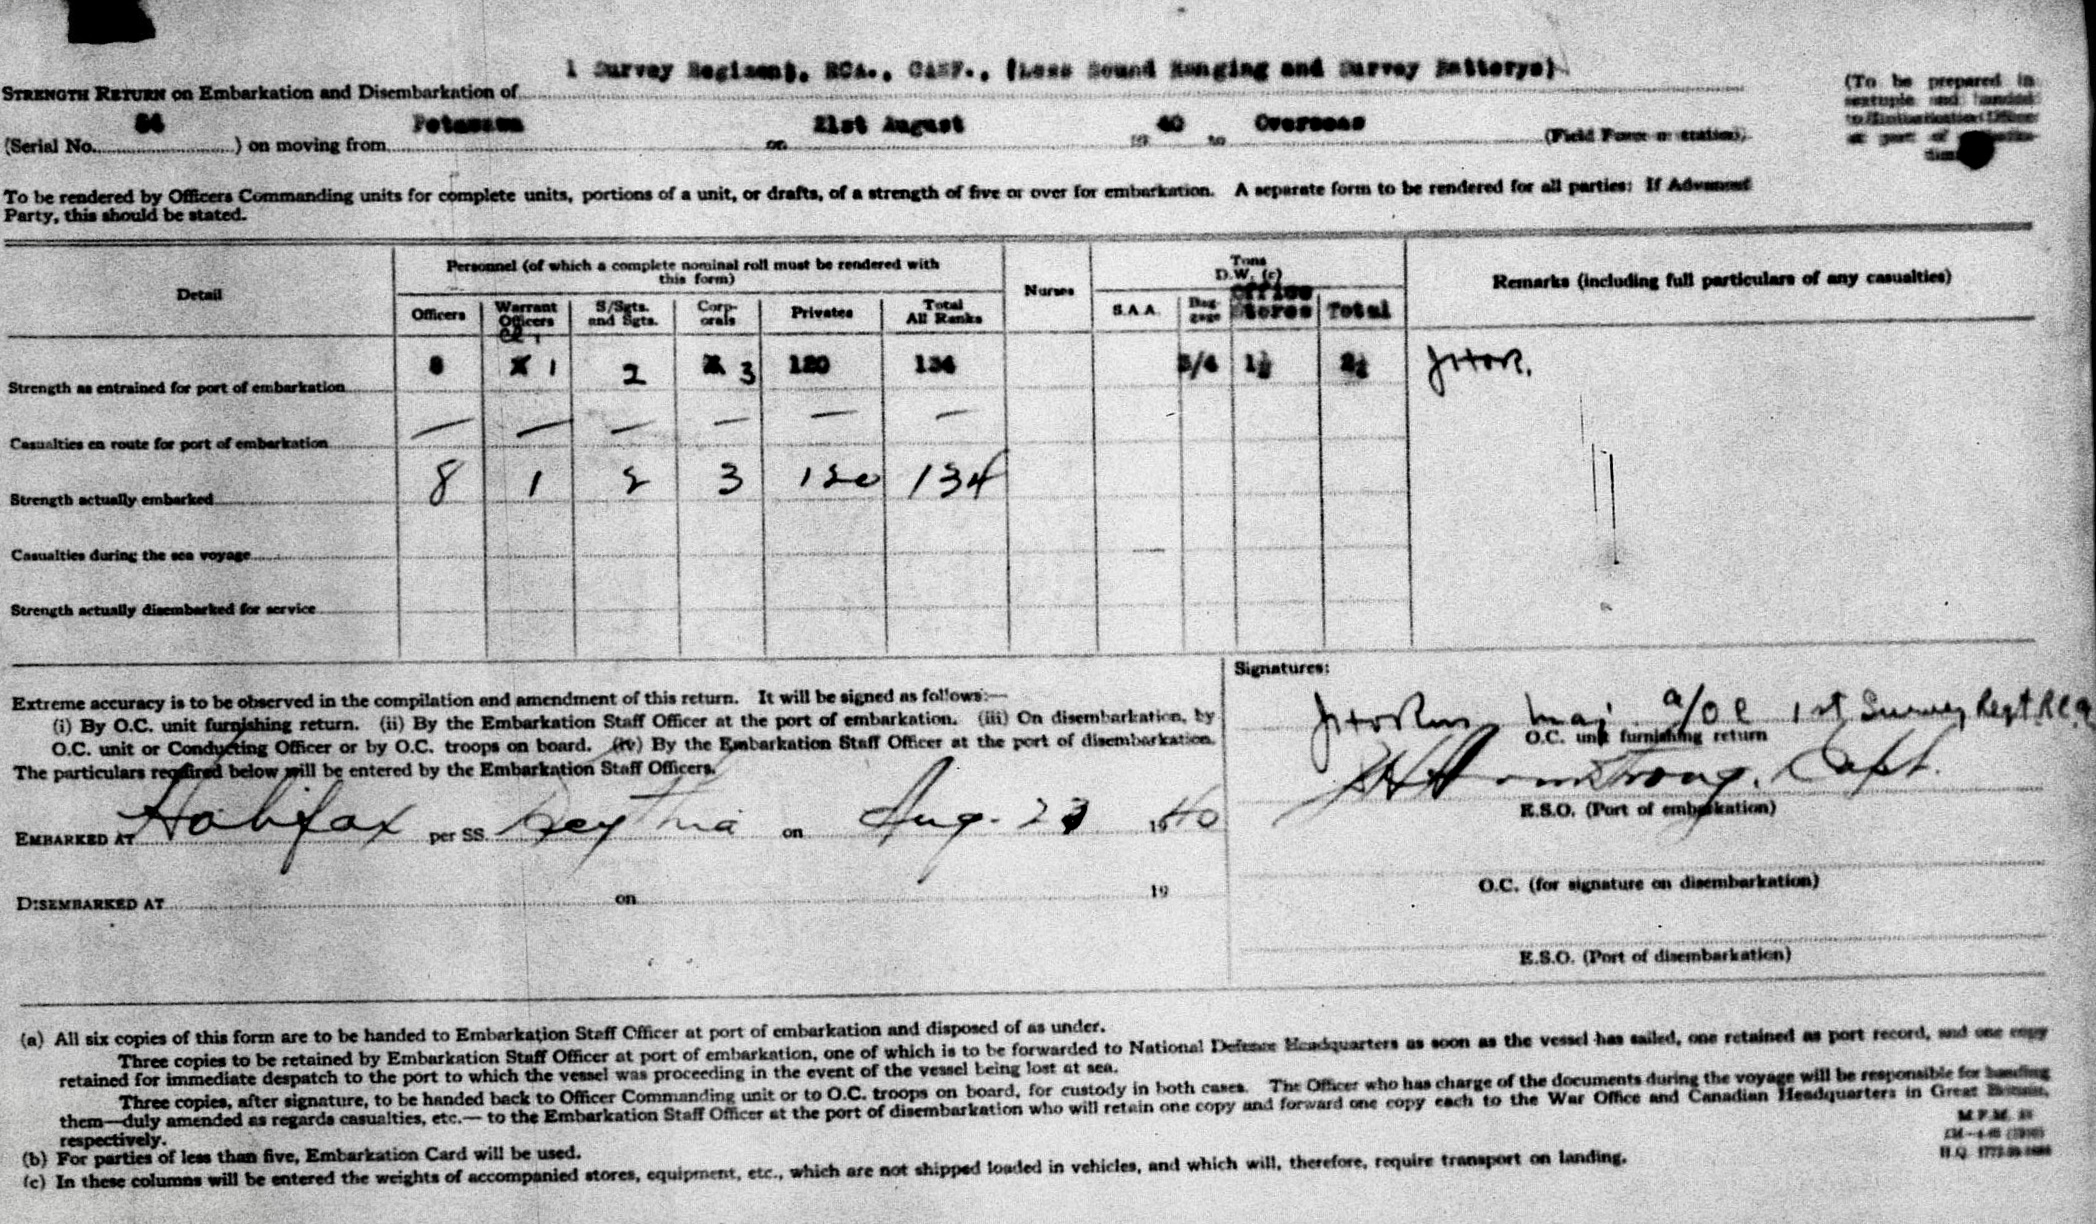 1 Survey Regiment, RCA., CASF., (Less Sound Ranging and Survey Batterys)
STRENGTH RETURN on Embarkation and Disembarkation of
(To be prepared in sextuple and handed to Embarkation Officer at port of
(Serial No. 54 ) on moving from Petawawa on 21st August 19 40 to Overseas (Field Force or station).
To be rendered by Officers Commanding units for complete units, portions of a unit, or drafts, of a strength of five or over for embarkation. A separate form to be rendered for all parties: If Advanced
Party, this should be stated.
Detail
Personnel (of which a complete nominal roll must be rendered with this form)
Nurses
Tons D.W. (c)
Remarks (including full particulars of any casualties)
Officers Warrant Officers Cl 1 S/Sgts. and Sgts. Corporals Privates Total All Ranks S.A.A. Baggage Office Stores Total
Strength as entrained for port of embarkation 8 1 2 3 120 134 3/4
Casualties en route for port of embarkation — — — — — —
Strength actually embarked 8 1 2 3 120 134
Casualties during the sea voyage
Strength actually disembarked for service
Extreme accuracy is to be observed in the compilation and amendment of this return. It will be signed as follows:—
(i) By O.C. unit furnishing return. (ii) By the Embarkation Staff Officer at the port of embarkation. (iii) On disembarkation, by
O.C. unit or Conducting Officer or by O.C. troops on board. (iv) By the Embarkation Staff Officer at the port of disembarkation.
The particulars required below will be entered by the Embarkation Staff Officers.
EMBARKED AT Halifax per SS. Scythia on Aug. 23 19 40
DISEMBARKED AT on 19
Signatures:
Maj a/OC 1st Survey Regt RCA
O.C. unit furnishing return
Armstrong, Capt.
E.S.O. (Port of embarkation)
O.C. (for signature on disembarkation)
E.S.O. (Port of disembarkation)
(a) All six copies of this form are to be handed to Embarkation Staff Officer at port of embarkation and disposed of as under.
Three copies to be retained by Embarkation Staff Officer at port of embarkation, one of which is to be forwarded to National Defence Headquarters as soon as the vessel has sailed, one retained as port record, and one copy
retained for immediate despatch to the port to which the vessel was proceeding in the event of the vessel being lost at sea.
Three copies, after signature, to be handed back to Officer Commanding unit or to O.C. troops on board, for custody in both cases. The Officer who has charge of the documents during the voyage will be responsible for handing
them—duly amended as regards casualties, etc.—to the Embarkation Staff Officer at the port of disembarkation who will retain one copy and forward one copy each to the War Office and Canadian Headquarters in Great Britain,
respectively.
(b) For parties of less than five, Embarkation Card will be used.
(c) In these columns will be entered the weights of accompanied stores, equipment, etc., which are not shipped loaded in vehicles, and which will, therefore, require transport on landing.